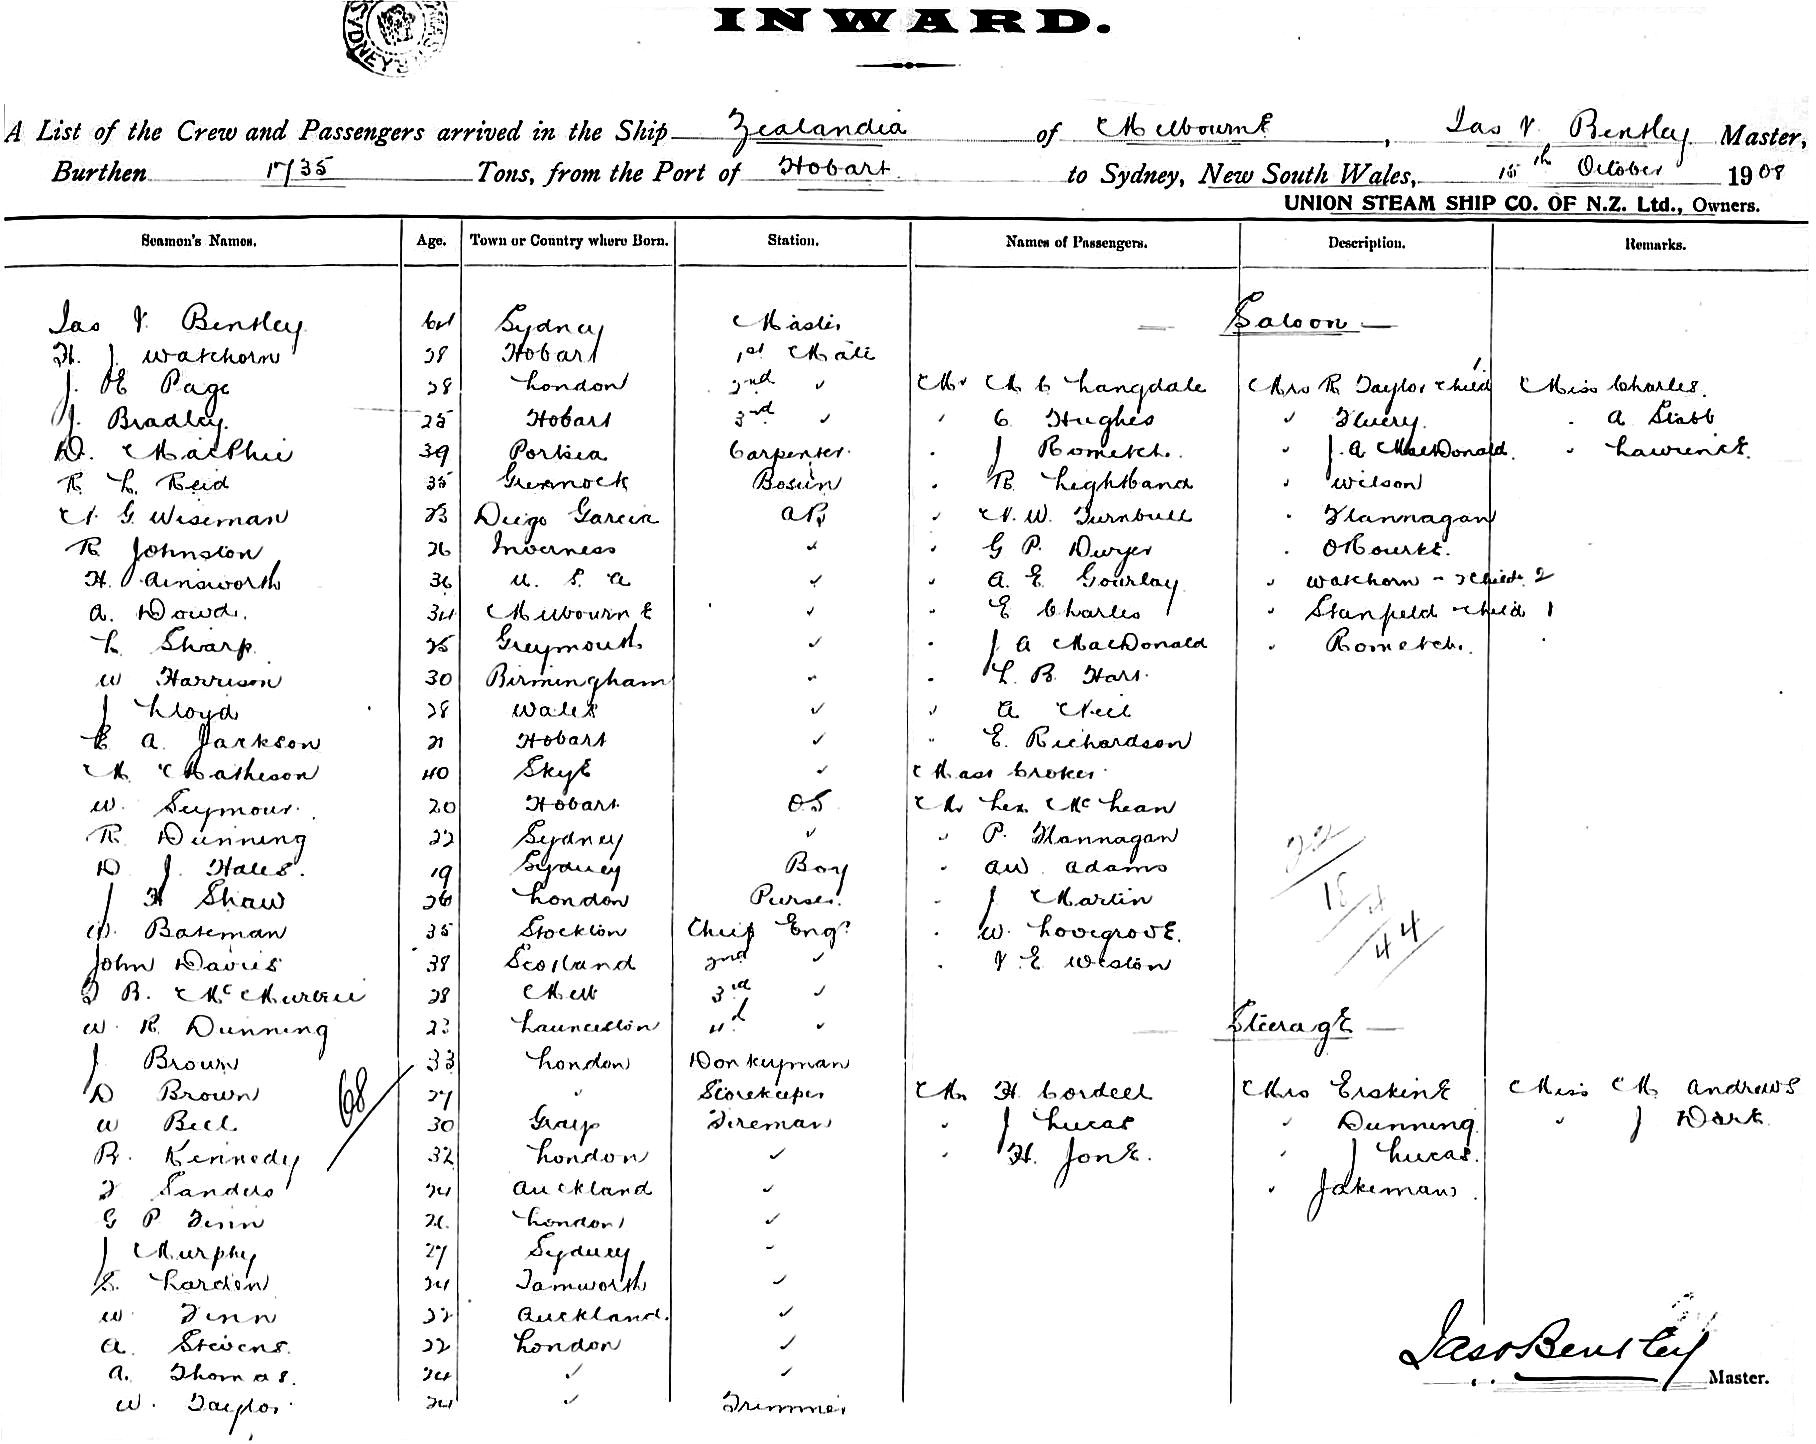 SYDNEY
INWARD.
A List of the Crew and Passengers arrived in the Ship Zealandia of Melbourne, Jas V. Bentley Master,
Burthen 1735 Tons, from the Port of Hobart to Sydney, New South Wales, 15th October 1908
UNION STEAM SHIP CO. OF N.Z. Ltd., Owners.
Seamen's Names. Age. Town or Country where Born. Station. Names of Passengers. Description. Remarks.
Jas V. Bentley 64 Sydney Master — Saloon —
H. J. Watchorn 28 Hobart 1st Mate
J. E Page 28 London 2nd " Mr M C Langdale Mrs R Taylor & child 1 Miss Charles.
J. Bradley. 25 Hobart 3rd " " C. Hughes " Fluery. " A Stabb
D. MacPhie 39 Portsea Carpenter. " J Rometch. " J. A MacDonald. " Lawrence.
R L Reid 35 Greenock Bosun " R Lightband " Wilson
N. G. Wiseman 23 Diego Garcia AB " N. W. Turnbull " Flannagan
R Johnston 26 Inverness " " G P. Dwyer " O'Rourke.
H. Ainsworth 36 U. S. A " " A. E Gourlay " Watchorn - & child 2
A. Dowd. 34 Melbourne " " E Charles " Stanfield & child 1
L Sharp. 25 Greymouth " " J A MacDonald " Rometch.
W Harrison 30 Birmingham " " L. B. Hart.
J Lloyd 28 Wales " " A Neil
E A. Jackson 21 Hobart " " E. Richardson
M Matheson 40 Skye " Mast Croker
W. Seymour. 20 Hobart OS. Mr Lex McLean
R Dunning 22 Sydney " " P. Flannagan 22
D J. Hales. 19 Sydney Boy " AW. Adams
J H Shaw 26 London Purser. " J Martin 18 4
W. Bateman 35 Stockton Chief Engr " W. Lovegrove. 44
John Davies 38 Scotland 2nd " " V. E Weston
J B. McMurtrie 28 Melb 3rd "
W. R. Dunning 23 Launceston 4th " — Steerage —
J Brown 33 London Donkeyman
D Brown 27 " Storekeeper Mr H Cordell Mrs Erskine Miss M Andrews
W Bell 30 Grays Fireman " J Lucas " Dunning " J Dark.
R. Kennedy 32 London " " H. Jone. " J Lucas.
68
F Sanders 24 Auckland " " Jakeman.
G P Finn 26 London "
J Murphy 27 Sydney "
S. Larden 24 Tamworth "
W Finn 22 Auckland. "
A. Stevens. 22 London "
A. Thomas. 24 " "
W. Taylor 24 " Trimmer
Jas V Bentley Master.